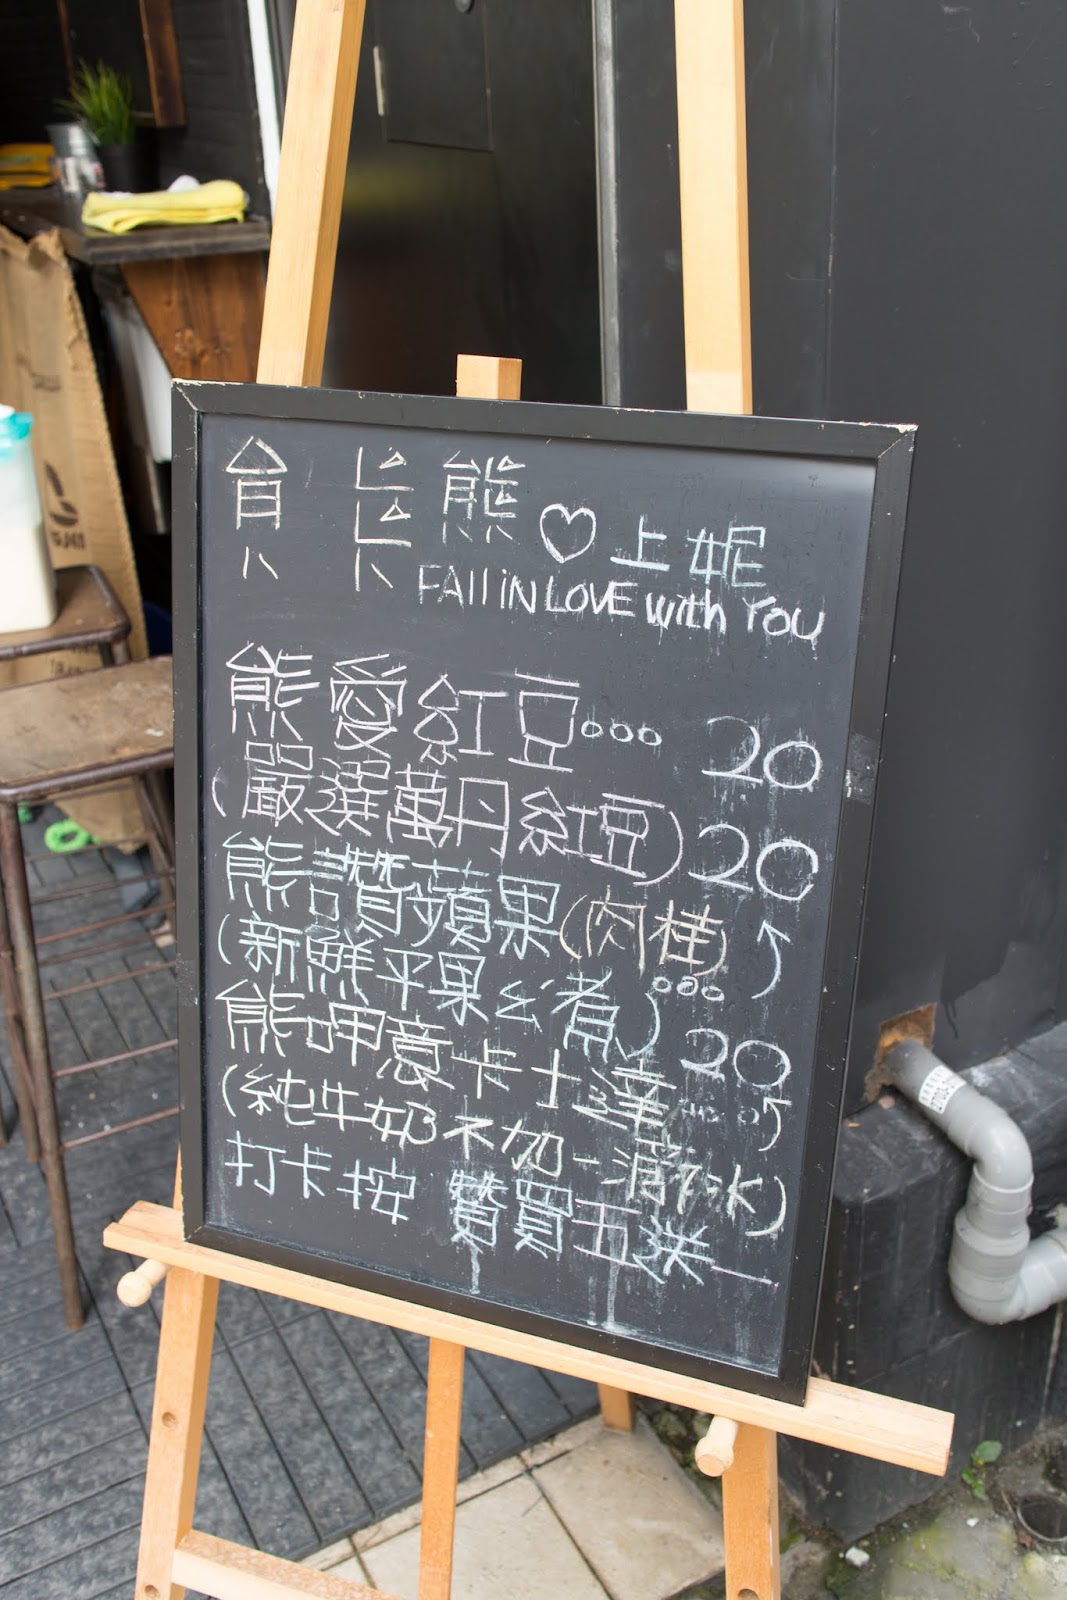 熊♡上妮
FAll iN LOVE with You
熊愛紅豆... 20
(嚴選萬丹紅豆) 20
熊讚蘋果(肉桂)
(新鮮平果ㄠ煮)... 20
熊呷意卡士達.....
(純牛奶不加一滴水)
打卡按 讚買五送一